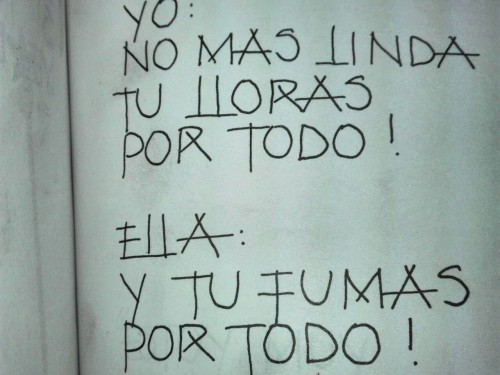 YO:
NO MAS LINDA
TU LLORAS
POR TODO!
ELLA:
Y TU FUMAS
POR TODO!